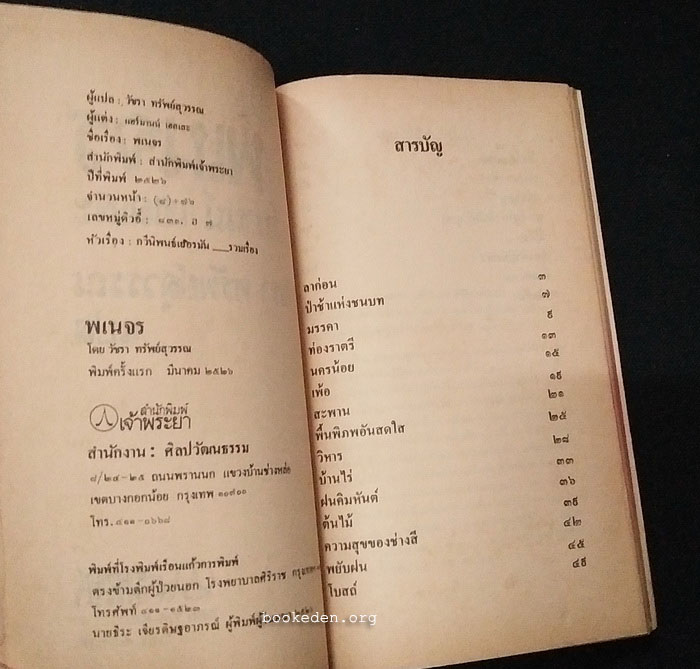 ผู้แปล : วัชรา ทรัพย์สุวรรณ
ผู้แต่ง : แฮร์มานน์ เฮสเสะ
ชื่อเรื่อง : พเนจร
สำนักพิมพ์ : สำนักพิมพ์เจ้าพระยา
ปีที่พิมพ์ ๒๕๒๖
จำนวนหน้า : (๘)+๗๖
เลขหมู่ดิวอี้ : ๘๓๑. ฮ ๗
หัวเรื่อง : กวีนิพนธ์เยอรมัน __รวมเรื่อง
พเนจร
โดย วัชรา ทรัพย์สุวรรณ
พิมพ์ครั้งแรก มีนาคม ๒๕๒๖
สำนักพิมพ์
เจ้าพระยา
สำนักงาน : ศิลปวัฒนธรรม
๘/๒๔-๒๕ ถนนพรานนก แขวงบ้านช่างหล่อ
เขตบางกอกน้อย กรุงเทพ ๑๐๗๐๐
โทร. ๔๑๑-๐๖๖๘
พิมพ์ที่โรงพิมพ์เรือนแก้วการพิมพ์
ตรงข้ามตึกผู้ป่วยนอก โรงพยาบาลศิริราช
โทรศัพท์ ๔๑๑-๑๕๒๓
นายธีระ เจียรดิษฐอาภรณ์ ผู้พิมพ์
สารบัญ
ลาก่อน ๓
ป่าช้าแห่งชนบท ๗
มรรคา ๙
ท่องราตรี ๑๓
นครน้อย ๑๕
เพ้อ ๑๙
สะพาน ๒๑
พื้นพิภพอันสดใส ๒๕
วิหาร ๒๘
บ้านไร่ ๓๓
ฝนคิมหันต์ ๓๖
ต้นไม้ ๓๙
ความสุขของช่างสี ๔๒
พยับฝน ๔๕
โบสถ์ ๔๙
bookeden.org